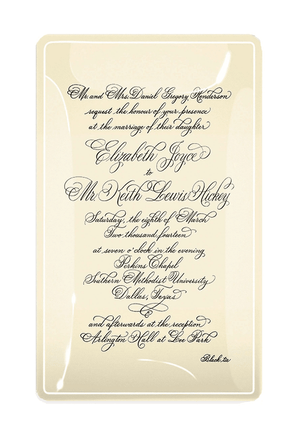 Mr. and Mrs. Daniel Gregory Henderson
request the honour of your presence
at the marriage of their daughter
Elizabeth Joyce
to
Mr. Keith Loewis Hickey
Saturday, the eighth of March
Two thousand fourteen
at seven o'clock in the evening
Perkins Chapel
Southern Methodist University
Dallas, Texas
and afterwards at the reception
Arlington Hall at Lee Park
Black tie